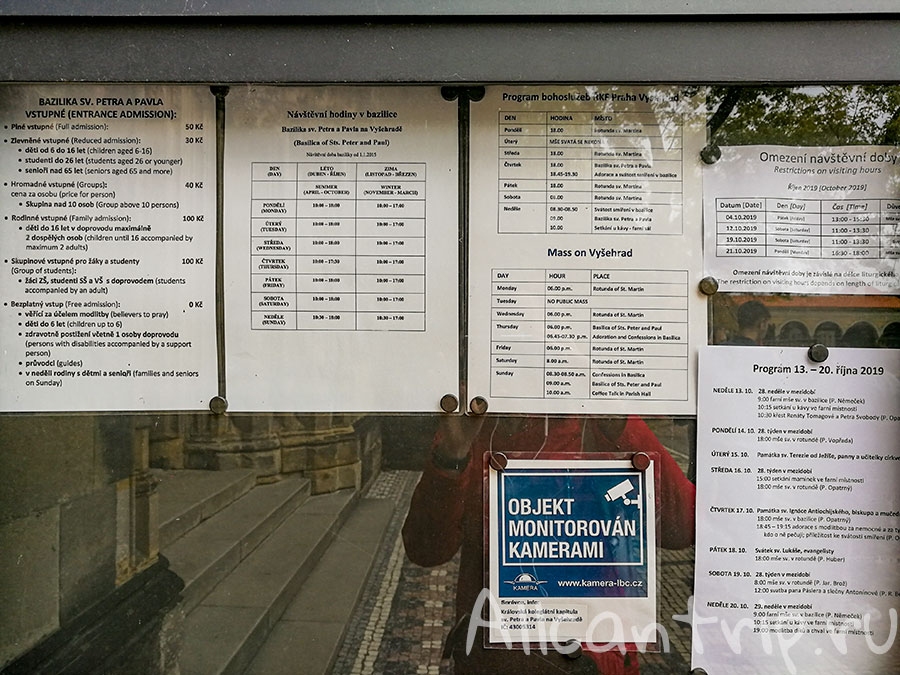 BAZILIKA SV. PETRA A PAVLA
VSTUPNÉ (ENTRANCE ADMISSION):
• Plné vstupné (Full admission): 50 Kč
• Zlevněné vstupné (Reduced admission): 30 Kč
• děti od 6 do 16 let (children aged 6-16)
• studenti do 26 let (students aged 26 or younger)
• senioři nad 65 let (seniors aged 65 and more)
• Hromadné vstupné (Groups): 40 Kč
cena za osobu (price for person)
• Skupina nad 10 osob (Group above 10 persons)
• Rodinné vstupné (Family admission): 100 Kč
• děti do 16 let v doprovodu maximálně
2 dospělých osob (children until 16 accompanied by
maximum 2 adults)
• Skupinové vstupné pro žáky a studenty 100 Kč
(Group of students):
• žáci ZŠ, studenti SŠ a VŠ s doprovodem (students
accompanied by an adult)
• Bezplatný vstup (Free admission): 0 Kč
• věřící za účelem modlitby (believers to pray)
• děti do 6 let (children up to 6)
• zdravotně postižení včetně 1 osoby doprovodu
(persons with disabilities accompanied by a support
person)
• průvodci (guides)
• v neděli rodiny s dětmi a senioři (families and seniors
on Sunday)
Návštěvní hodiny v bazilice
Bazilika sv. Petra a Pavla na Vyšehradě
(Basilica of Sts. Peter and Paul)
Návštěvní doba baziliky od 1.1.2015
DEN (DAY) LÉTO (DUBEN - ŘÍJEN) ZIMA (LISTOPAD - BŘEZEN)
SUMMER (APRIL - OCTOBER) WINTER (NOVEMBER - MARCH)
PONDĚLÍ (MONDAY) 10:00 – 18:00 10:00 – 17:00
ÚTERÝ (TUESDAY) 10:00 – 18:00 10:00 – 17:00
STŘEDA (WEDNESDAY) 10:00 – 18:00 10:00 – 17:00
ČTVRTEK (THURSDAY) 10:00 – 17:30 10:00 – 17:00
PÁTEK (FRIDAY) 10:00 – 18:00 10:00 – 17:00
SOBOTA (SATURDAY) 10:00 – 18:00 10:00 – 17:00
NEDĚLE (SUNDAY) 10:30 – 18:00 10:30 – 17:00
Program bohoslužeb ŘKF Praha Vyšehrad
DEN HODINA MÍSTO
Pondělí 18.00 Rotunda sv. Martina
Úterý MŠE SVATÁ SE NEKONÁ
Středa 18.00 Rotunda sv. Martina
Čtvrtek 18.00 Bazilika sv. Petra a Pavla
18.45-19.30 Adorace a svátost smíření v bazilice
Pátek 18.00 Rotunda sv. Martina
Sobota 08.00 Rotunda sv. Martina
Neděle 08.30-08.50 Svátost smíření v bazilice
09.00 Bazilika sv. Petra a Pavla
10.00 Setkání u kávy - farní sál
Mass on Vyšehrad
DAY HOUR PLACE
Monday 06.00 p.m. Rotunda of St. Martin
Tuesday NO PUBLIC MASS
Wednesday 06.00 p.m. Rotunda of St. Martin
Thursday 06.00 p.m. Basilica of Sts. Peter and Paul
06.45-07.30 p.m. Adoration and Confessions in Basilica
Friday 06.00 p.m. Rotunda of St. Martin
Saturday 8.00 a.m. Rotunda of St. Martin
Sunday 08.30-08.50 a.m. Confessions in Basilica
09.00 a.m. Basilica of Sts. Peter and Paul
10.00 a.m. Coffee Talk in Parish Hall
Omezení návštěvní doby
Restrictions on visiting hours
Říjen 2019 [October 2019]
Datum [Date] Den [Day] Čas [Time]
04.10.2019 Pátek [Friday] 13:00 - 15:30
12.10.2019 Sobota [Saturday] 11:00 - 13:30
19.10.2019 Sobota [Saturday] 11:00 - 13:30
21.10.2019 Pondělí [Monday] 16:30 - 18:00
Omezení návštěvní doby je závislé na délce liturgického
The restriction on visiting hours depends on length of liturg
Program 13. – 20. října 2019
NEDĚLE 13. 10. 28. neděle v mezidobí
9:00 farní mše sv. v bazilice (P. Němeček)
10:15 setkání u kávy ve farní místnosti
10:30 křest Renáty Tomagové a Petra Svobody (P. Opat
PONDĚLÍ 14. 10. 28. týden v mezidobí
18:00 mše sv. v rotundě (P. Vopřada)
ÚTERÝ 15. 10. Památka sv. Terezie od Ježíše, panny a učitelky církve
STŘEDA 16. 10. 28. týden v mezidobí
15:00 setkání maminek ve farní místnosti
18:00 mše sv. v rotundě (P. Opatrný)
ČTVRTEK 17. 10. Památka sv. Ignáce Antiochijského, biskupa a muče
18:00 mše sv. v bazilice (P. Opatrný)
18:45 – 19:15 adorace s modlitbou za nemocné a za ty
kdo o ně pečují; příležitost ke svátosti smíření (P. O
PÁTEK 18. 10. Svátek sv. Lukáše, evangelisty
18:00 mše sv. v rotundě (P. Huber)
SOBOTA 19. 10. 28. týden v mezidobí
8:00 mše sv. v rotundě (P. Jar. Brož)
12:00 svatba pana Páslera a slečny Antonínové (P. R.
NEDĚLE 20. 10. 29. neděle v mezidobí
9:00 farní mše sv. v bazilice (P. Němeček)
10:15 setkání u kávy ve farní místnosti
19:00 modlitba díků a chval ve farní místnosti
OBJEKT
MONITOROVÁN
KAMERAMI
KAMERA www.kamera-lbc.cz
Správce, info:
Královská kolegiátní kapitula
sv. Petra a Pavla na Vyšehradě
IČ: 43005314
Alicantrip.ru